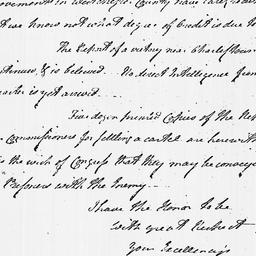 County have
we know not what degree of Credit is due to
The Report of a victory near Charlestown
& is believed. No direct Intelligence from
is yet arrived
Five dozen printed Copies of the
Commissioners for settling a cartel are herewith
is the wish of Congress that they may be conveyed
Prisoners with the Enemy
I have the Honor to be
with great Respect
Your Excellency's